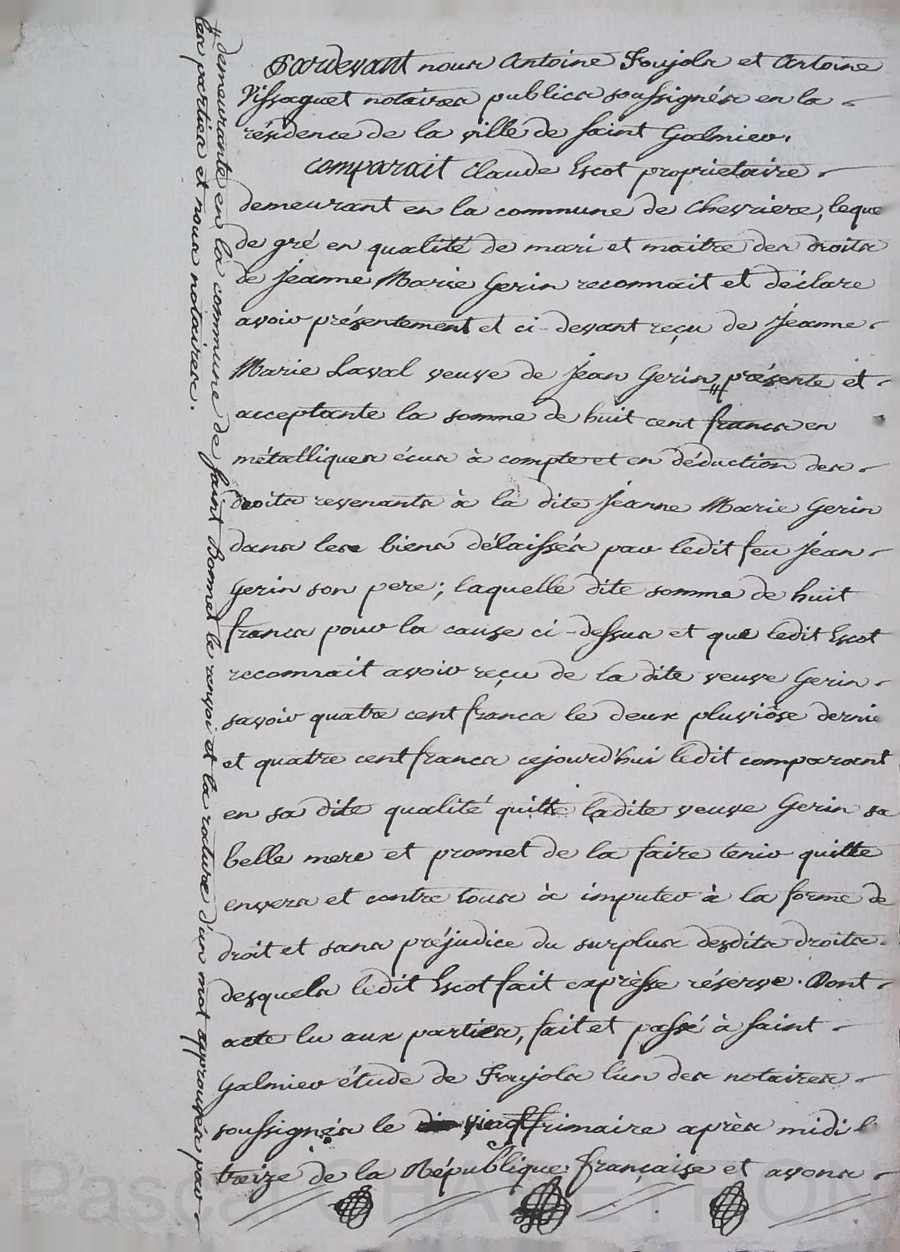 Pardevant nous Antoine Foujols et Antoine
Vissaguet notaires publics soussignés en la
résidence de la ville de Saint Galmier.
Comparait Claude Escot proprietaire
demeurant en la commune de Chevriere, leque
de gré en qualité de mari et maitre des droits
de Jeanne Marie Gerin reconnait et déclare
avoir présentement et ci-devant reçu de Jeanne
Marie Laval veuve de Jean Gerin, présente et
acceptante la somme de huit cent francs en
métalliques écus à compte et en déduction des
droits revenants à la dite Jeanne Marie Gerin
dans les biens délaissés par ledit feu Jean
Gerin son pere; laquelle dite somme de huit
francs pour la cause ci-dessus et que ledit Escot
reconnait avoir reçu de la dite veuve Gerin
savoir quatre cent francs le deux pluviôse dernie
et quatre cent francs cejourd'hui ledit comparant
en sa dite qualité quitte ladite veuve Gerin sa
belle mere et promet de la faire tenir quitte
envers et contre tous à imputer à la forme de
droit et sans préjudice du surplus desdits droits
desquels ledit Escot fait expresse réserve. Dont
acte lu aux parties, fait et passé à Saint
Galmier étude de Foujols l'un des notaires
soussignés le vingt frimaire après midi l
treize de la République française et avons
demeurante en la commune de Saint Bonnet le renvoi et la rature d'un mot approuvés par
les parties et nous notaires.
Pascal CHALEYRON